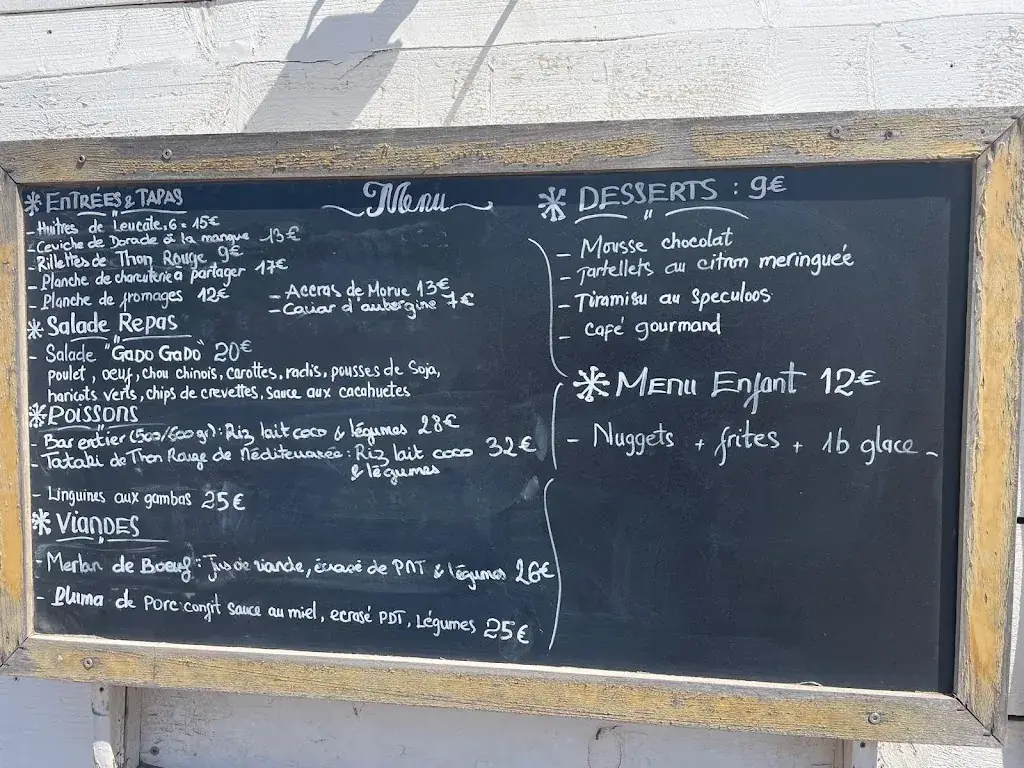 Menu
* ENTRÉES & TAPAS
- Huîtres de Leucate, 6 = 15€
- Ceviche de Dorade à la mangue 13€
- Rillettes de Thon Rouge 9€
- Planche de charcuterie à partager 17€
- Planche de fromages 12€
- Accras de Morue 13€
- Caviar d'aubergine 7€
* Salade Repas
- Salade "GADO GADO" 20€
poulet, oeuf, chou chinois, carottes, radis, pousses de Soja,
haricots verts, chips de crevettes, sauce aux cacahuetes
* POISSONS
- Bar entier (500/600 gr) : Riz lait coco & légumes 28€
- Tataki de Thon Rouge de Méditerranée : Riz lait coco 32€
& légumes
- Linguines aux gambas 25€
* VIANDES
- Merlan de Boeuf : Jus de viande, écrasé de PDT & légumes 26€
- Pluma de Porc confit sauce au miel, ecrasé PDT, Légumes 25€
* DESSERTS : 9€
- Mousse chocolat
- Tartellets au citron meringuée
- Tiramisu au Speculoos
- Café gourmand
* Menu Enfant 12€
- Nuggets + frites + 1b glace -